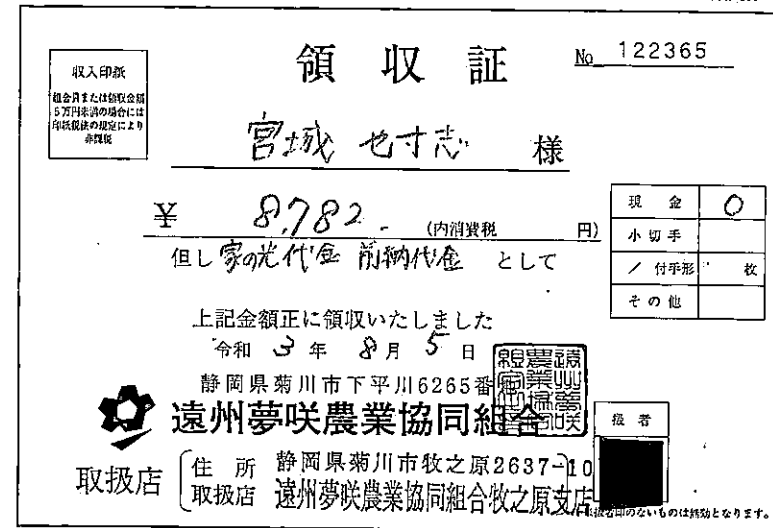 領収証
No 122365
収入印紙
組合員または領収金額
5万円未満の場合には
印紙税法の規定により
非課税
宮城 也寸志 様
¥ 8,782.- (内消費税 円)
但し 家の光代金 前納代金 として
現金 〇
小切手
/付手形 枚
その他
上記金額正に領収いたしました
令和 3 年 8 月 5 日
静岡県菊川市下平川6265番
遠州夢咲農業協同組合
扱者
取扱店
住所 静岡県菊川市牧之原2637-10
取扱店 遠州夢咲農業協同組合牧之原支店
扱者印のないものは無効となります。